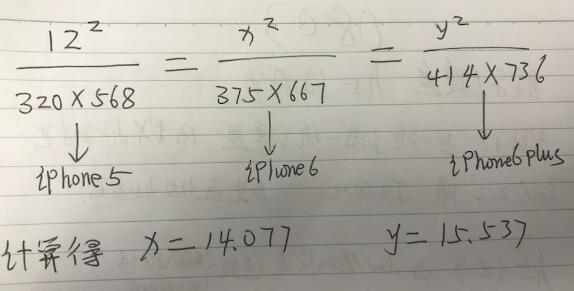 12² / 320×568 = x² / 375×667 = y² / 414×736
↓ ↓ ↓
iphone5 iPhone6 iPhone6plus
计算得 x=14.077 y=15.537